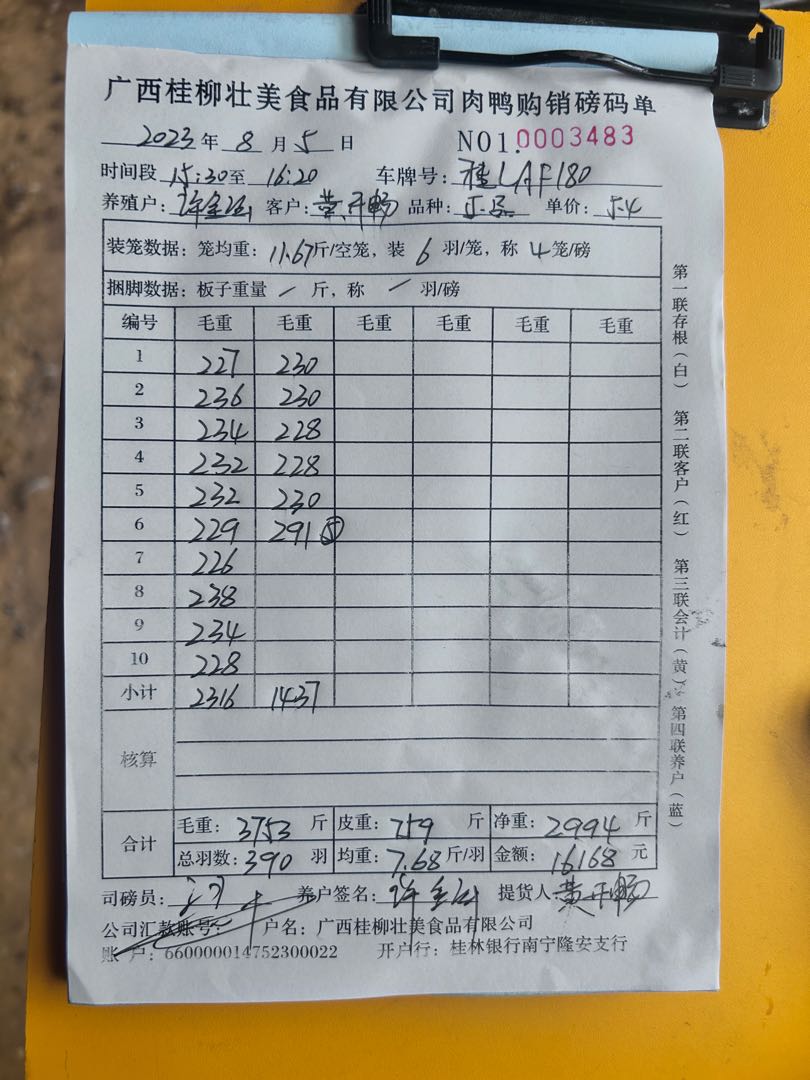 广西桂柳壮美食品有限公司肉鸭购销磅码单
2023 年 8 月 5 日 NO1.0003483
时间段 15:30 至 16:20 车牌号: 桂LAF180
养殖户: 许 客户: 黄开畅 品种: 单价: 5.4
装笼数据: 笼均重: 11.67斤/空笼, 装 6 羽/笼, 称 4 笼/磅
捆脚数据: 板子重量 / 斤, 称 / 羽/磅
编号 毛重 毛重 毛重 毛重 毛重 毛重
1 227 230
2 236 230
3 234 228
4 232 228
5 232 230
6 229 291 ⑤
7 226
8 238
9 234
10 228
小计 2316 1437
核算
合计
毛重: 3753 斤 皮重: 759 斤 净重: 2994 斤
总羽数: 390 羽 均重: 7.68 斤/羽 金额: 16168 元
司磅员: 养户签名: 许 提货人: 黄开畅
公司汇款账号: 户名: 广西桂柳壮美食品有限公司
账 户: 660000014752300022 开户行: 桂林银行南宁隆安支行
第一联存根(白) 第二联客户(红) 第三联会计(黄) 第四联养户(蓝)